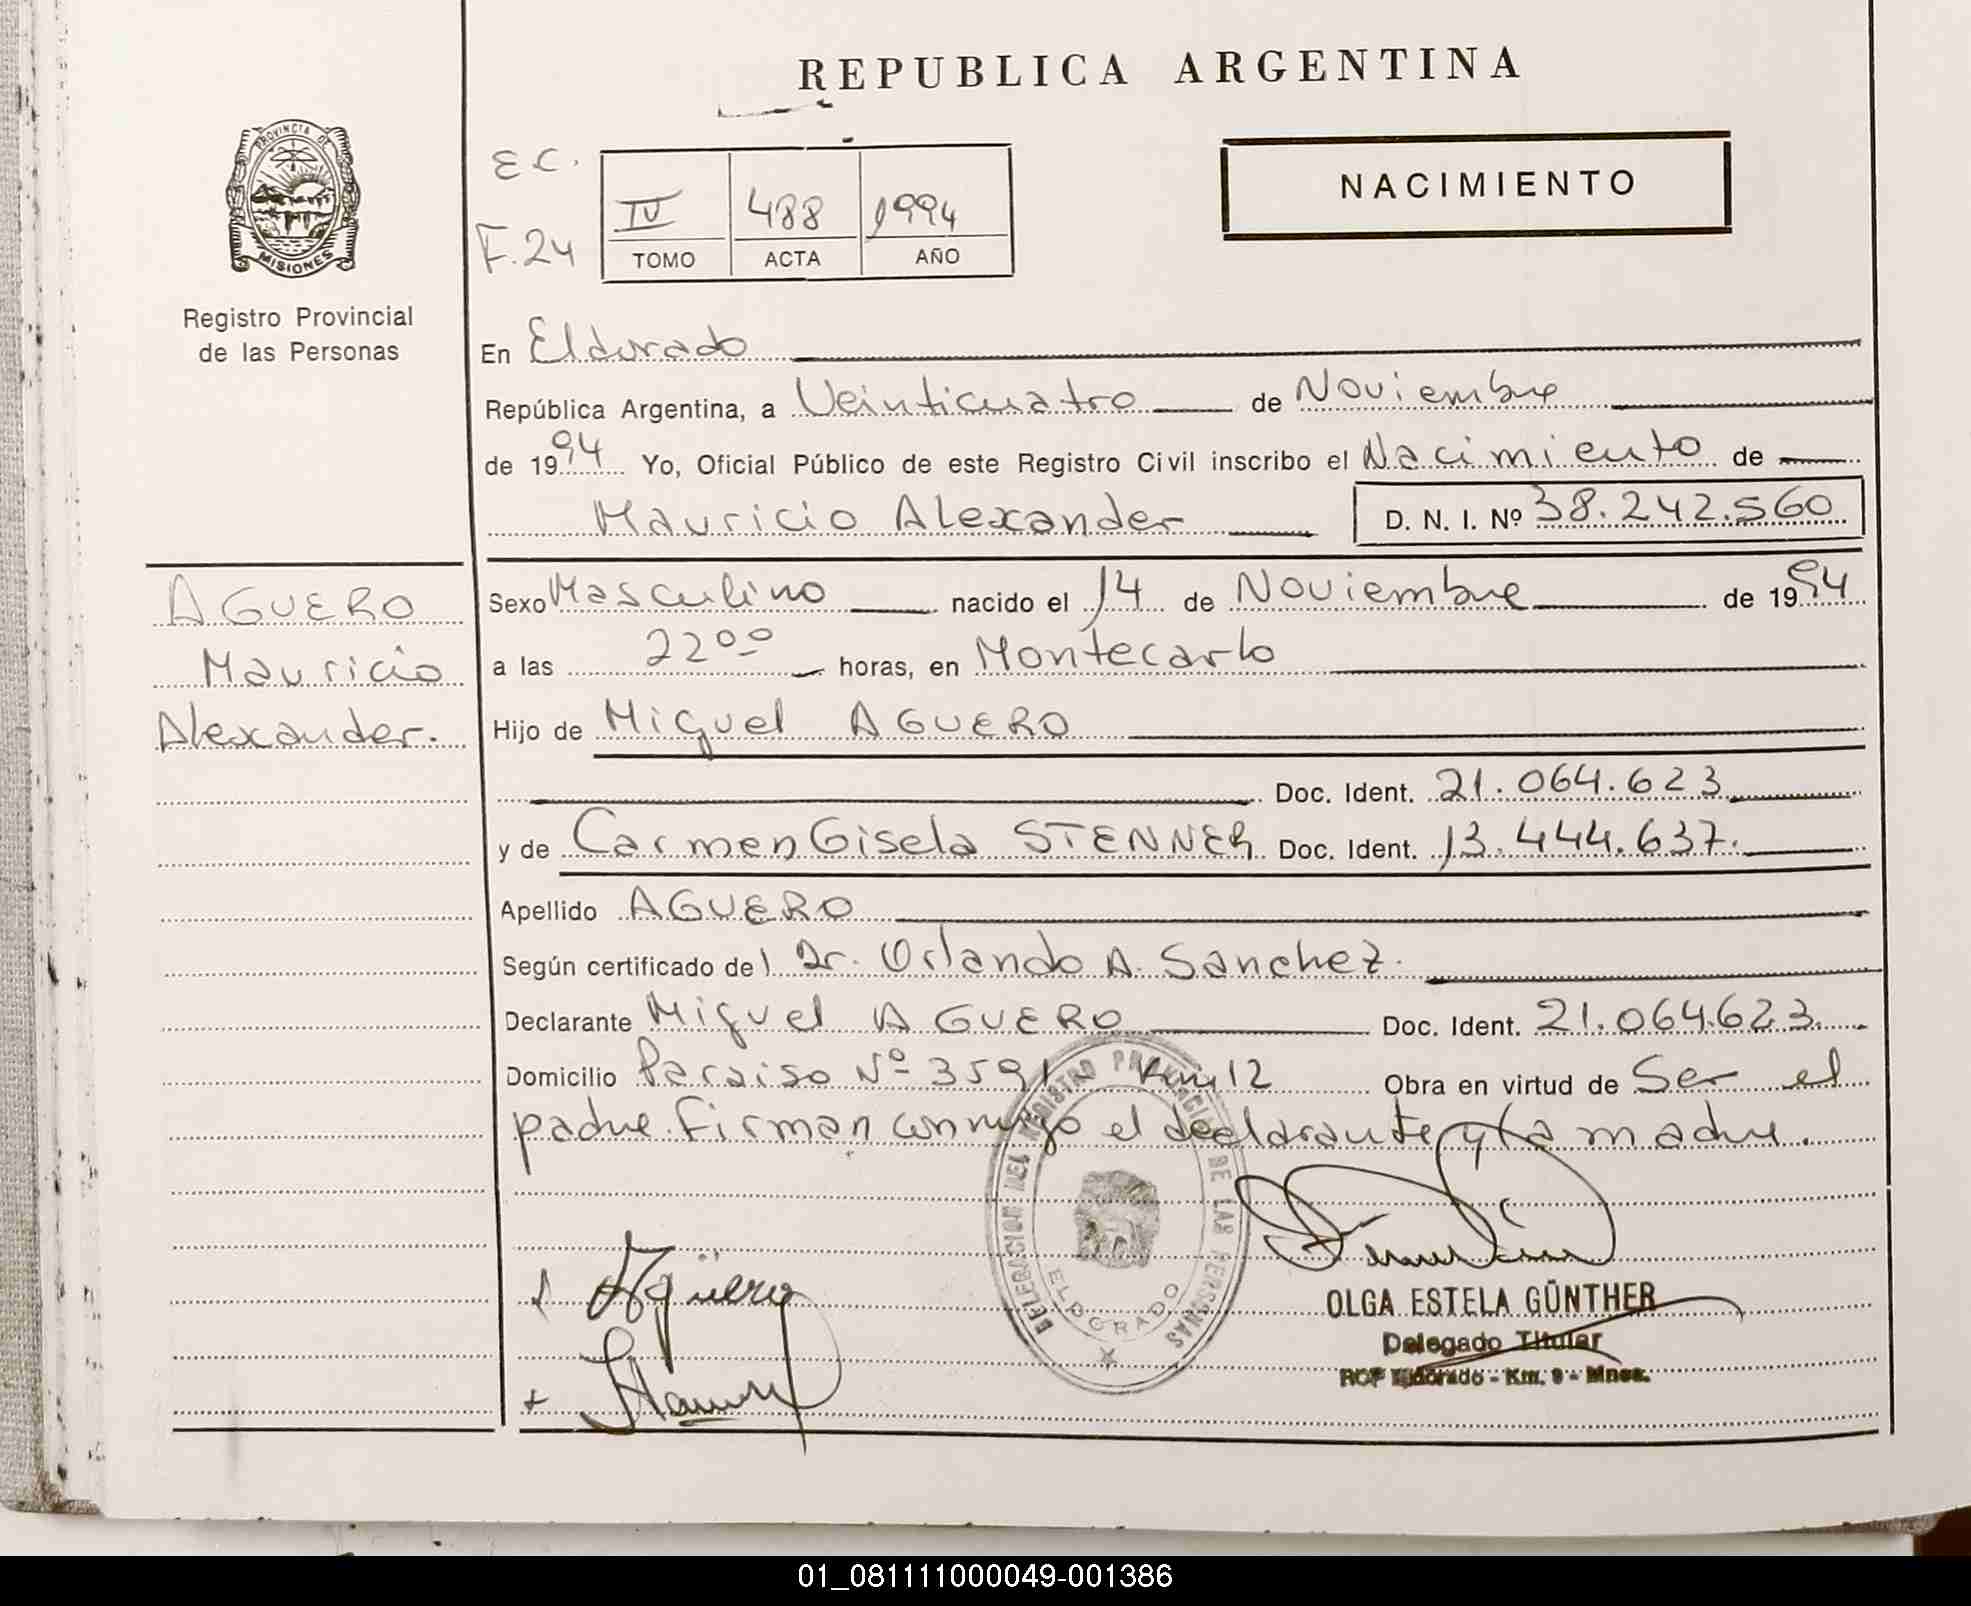 REPUBLICA ARGENTINA
PROVINCIA DE
MISIONES
Registro Provincial
de las Personas
E.C.
F.24
IV 488 1994
TOMO ACTA AÑO
NACIMIENTO
En Eldorado
República Argentina, a Veinticuatro de Noviembre
de 1994 Yo, Oficial Público de este Registro Civil inscribo el Nacimiento de
Mauricio Alexander D. N. I. Nº 38.242.560
AGUERO
Mauricio
Alexander.
Sexo Masculino nacido el 14 de Noviembre de 1994
a las 22ºº horas, en Montecarlo
Hijo de Miguel AGUERO
Doc. Ident. 21.064.623
y de Carmen Gisela STENNER Doc. Ident. 13.444.637.
Apellido AGUERO
Según certificado del Dr. Orlando A. Sanchez.
Declarante Miguel AGUERO Doc. Ident. 21.064.623.
Domicilio Paraiso Nº 3591 - Km 12 Obra en virtud de Ser el
padre. Firman conmigo el declarante y la madre.
DELEGACION DEL REGISTRO PROVINCIAL DE LAS PERSONAS
ELDORADO
Agüero
OLGA ESTELA GÜNTHER
Delegado Titular
RCP Eldorado - Km. 9 - Mnes.
01_081111000049-001386